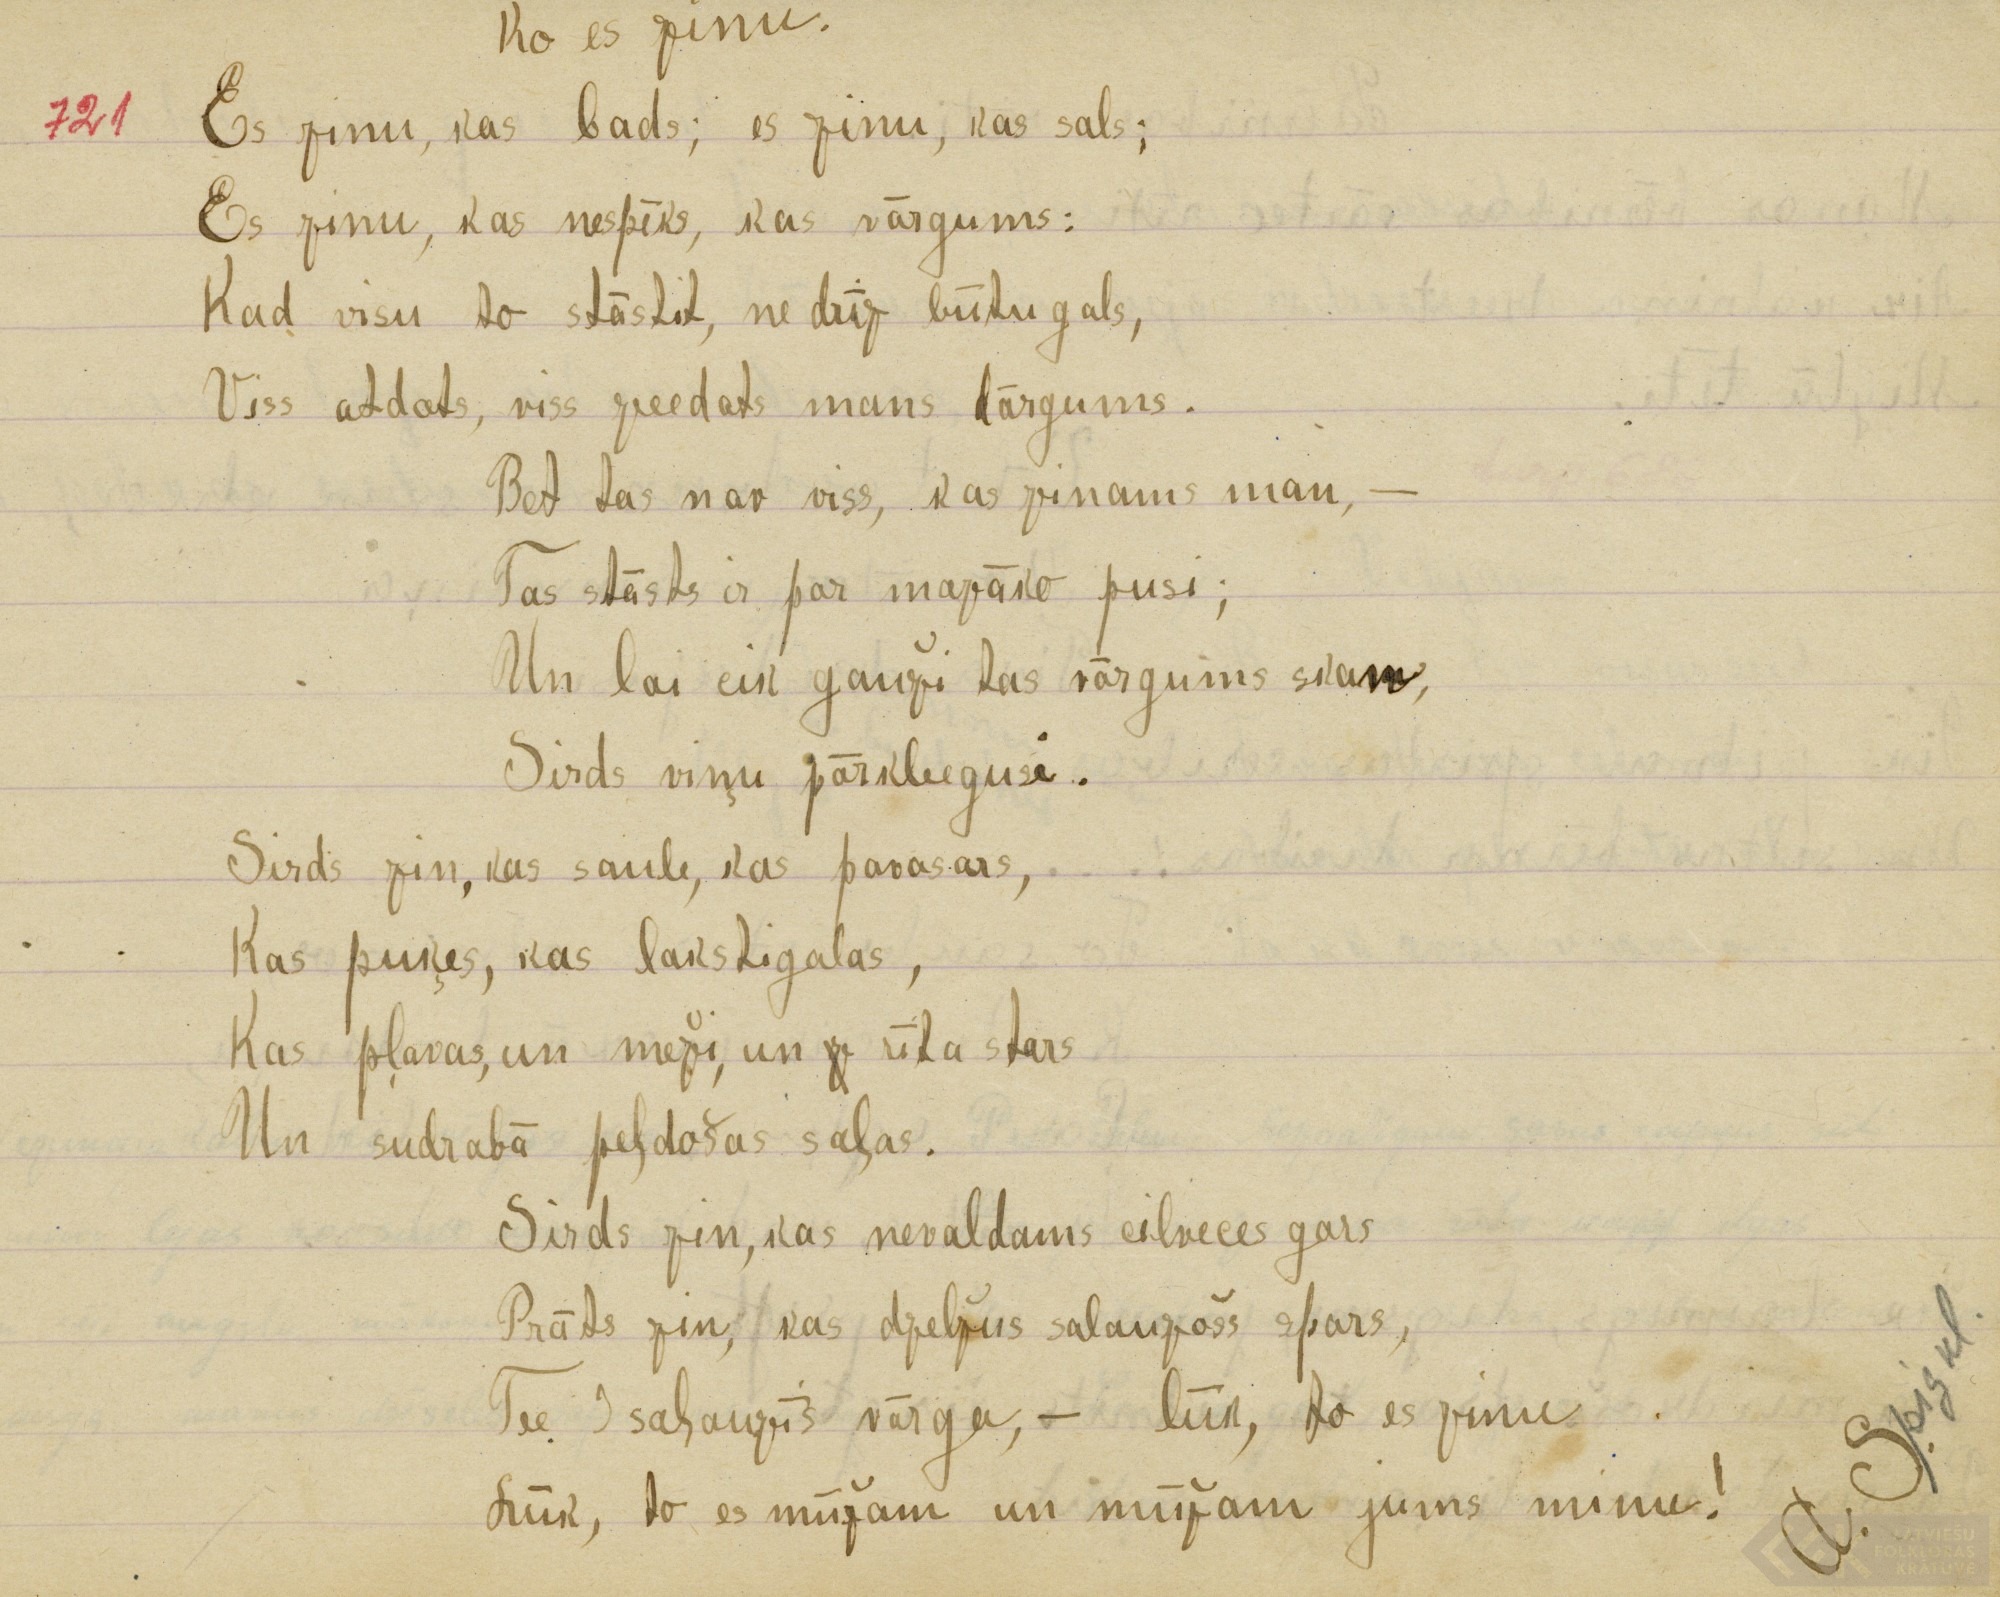 Ko es zinu.
721 Es zinu, kas bads; es zinu, kas sals;
Es zinu, kas nespēks, kas vārgums:
Kad visu to stāstit, ne drīz būtu gals,
Viss atdots, viss zeedots mans dārgums.
Bet tas nav viss, kas zinams man, —
Tas stāsts ir par mazāko pusi;
Un lai cik gauži tas vārgums skan,
Sirds viņu pārkleegusi.
Sirds zin, kas saule, kas pavasars,
Kas puķes, kas lakstigalas,
Kas pļavas, un meži, un rīta stars
Un sudrabā peldošas salas.
Sirds zin, kas nevaldams cilveces gars
Prāts zin, kas dzelžus salauzošs spars,
Tee salauzīs vārgu, — lūk, to es zinu
Lūk, to es mūžam un mūžam jums minu!
LATVIEŠU
FOLKLORAS
KRĀTUVE